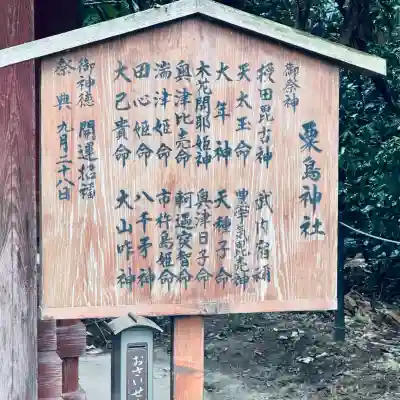 粟島神社
御祭神
授田毘古神 武内宿祢
天太玉命 豊宇気毘売神
大年神 天種子命
木花開耶姫神 奥津日子命
奥津比売命 軻遇突智命
湍津姫命 市杵島姫命
田心姫命 八千矛神
大己貴命 大山咋神
御神徳 開運招福
祭典 九月二十八日
おさいせ